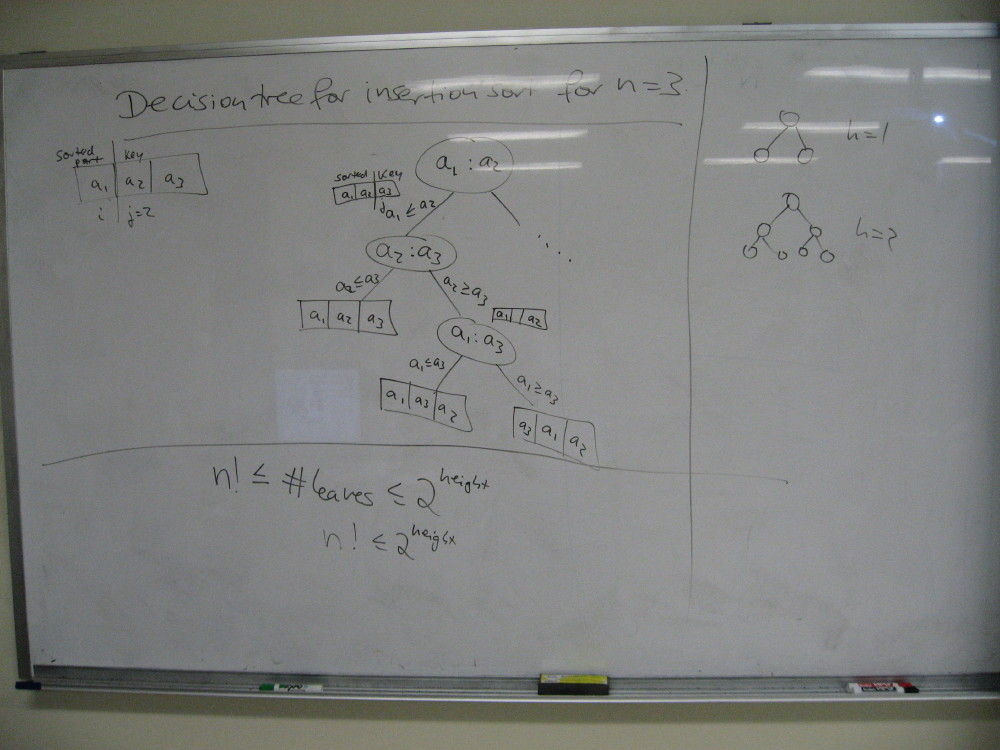 Decision tree for insertion sort for n=3
sorted part | key
a₁ a₂ a₃
i j=2
a₁ : a₂
sorted key
a₁ a₂ a₃
j
a₁ ≤ a₂
a₂ : a₃
a₂ ≤ a₃
a₂ ≥ a₃
a₁ a₂ a₃
a₁ a₂
a₁ : a₃
a₁ ≤ a₃
a₁ ≥ a₃
a₁ a₃ a₂
a₃ a₁ a₂
n! ≤ # leaves ≤ 2^height
n! ≤ 2^height
h=1
h=2